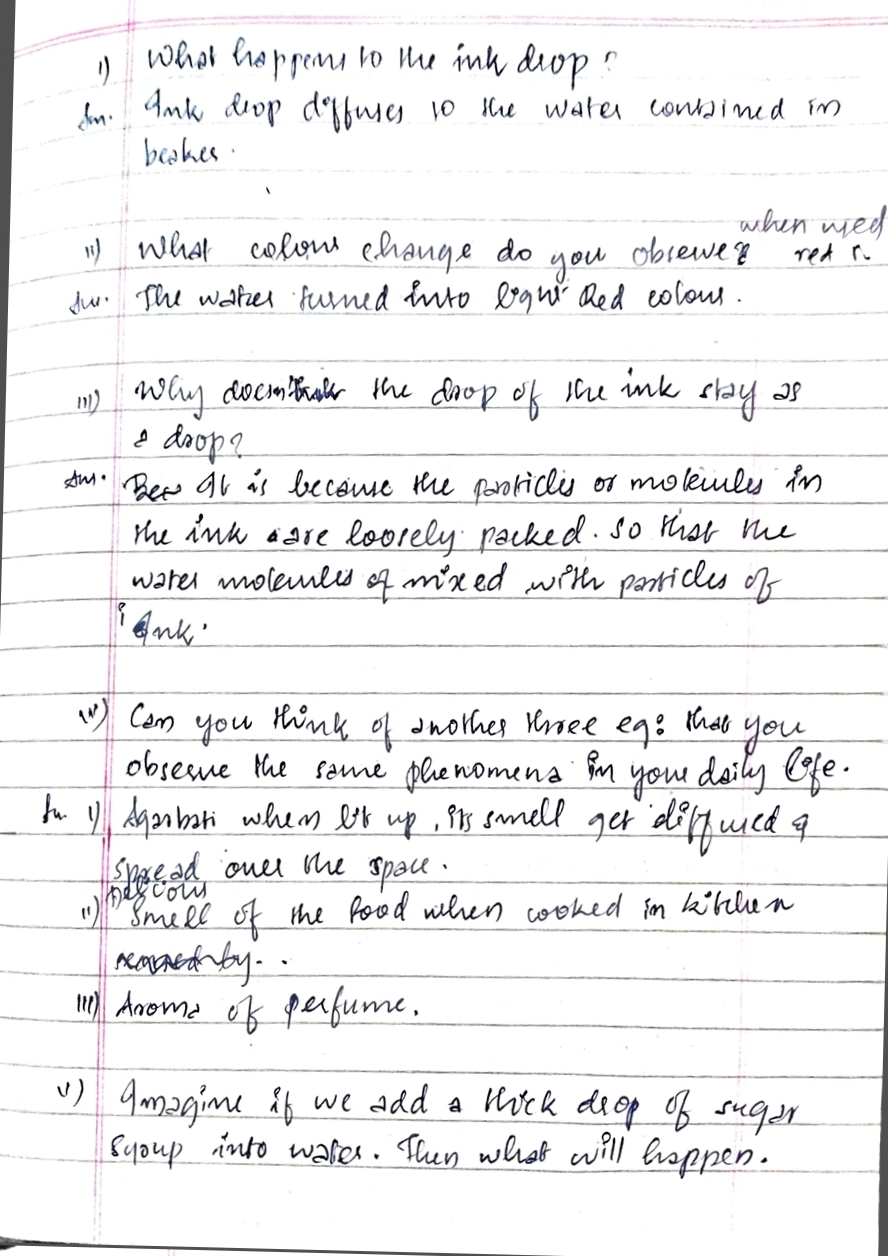 i) What happens to the ink drop?
Ans. Ink drop diffuses to the water contained in
beaker.
when used
ii) What colour change do you observe? red
Ans. The water turned into light Red colour.
iii) Why doesn't the drop of the ink stay as
a drop?
Ans. It is because the particles or molecules in
the ink are loosely packed. So that the
water molecules of mixed with particles of
ink.
iv) Can you think of another three eg: that you
observe the same phenomena in your daily life.
Ans. i) Agarbati when lit up, its smell get diffused &
spread over the space.
Delicious
ii) Smell of the food when cooked in kitchen
iii) Aroma of perfume.
v) Imagine if we add a thick drop of sugar
Syoup into water. Then what will happen.